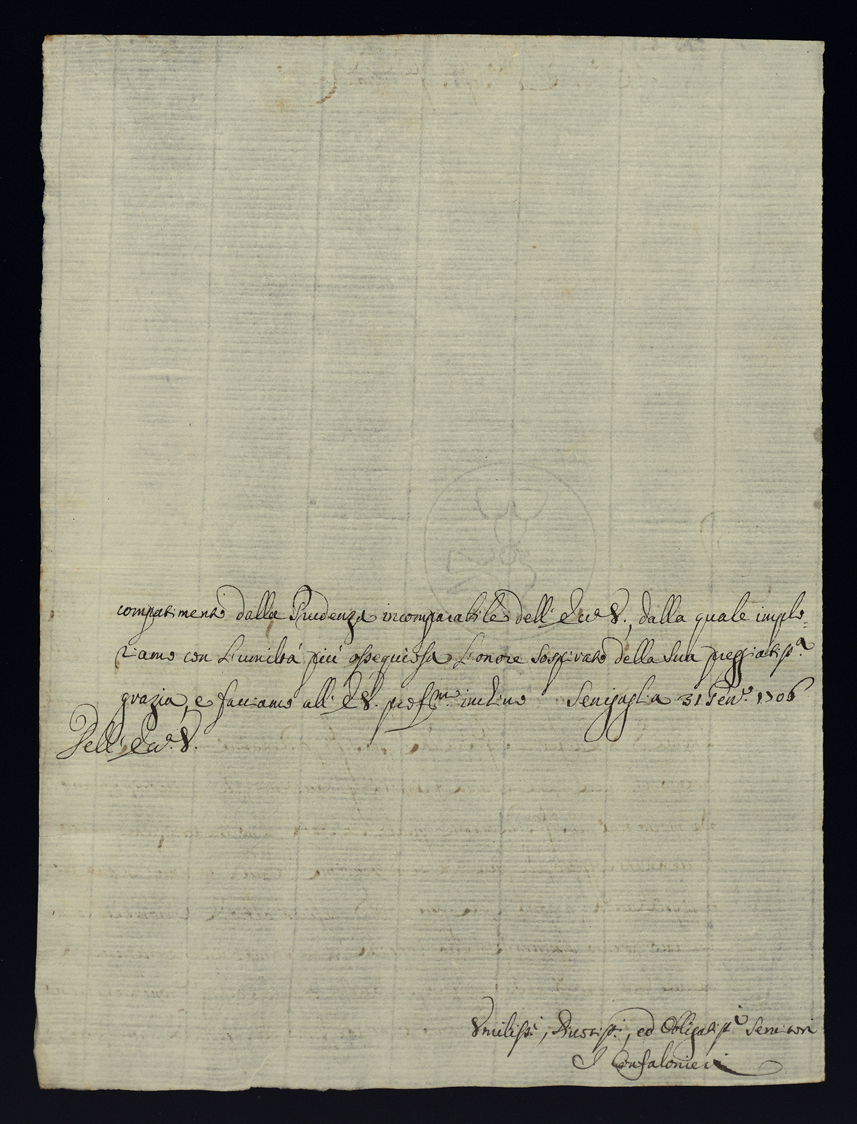 compatimento dalla Prudenza incomparabile dell' Ecc.ª V., dalla quale implo=
riamo con l'umiltà più ossequiosa l'onore sospirato della Sua preggiatiss.ª
grazia, e facciamo all' E.V. prof.mo inchino Senigaglia 31 Gen.º 1706
Dell' Ecc.ª V.
Vmiliss.i, Deuotiss.i, ed Obligatiss.i Seruitori
I Confalonieri